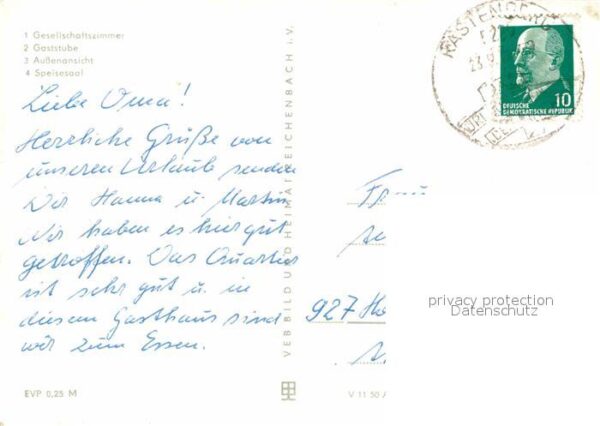 1 Gesellschaftszimmer
2 Gaststube
3 Außenansicht
4 Speisesaal
Liebe Oma!
Herzliche Grüße von
unseren Urlaube senden
Dir Hanna u. Martin
Wir haben es hier gut
getroffen. Das Quartier
ist sehr gut u. in
diesem Gasthaus sind
wir zum Essen.
EVP 0,25 M
VEB BILD UND HEIMAT REICHENBACH i. V.
V 11 50
RASTENBERG
23.9.
10
DEUTSCHE
DEMOKRATISCHE REPUBLIK
Frau
927 Ho
privacy protection
Datenschutz